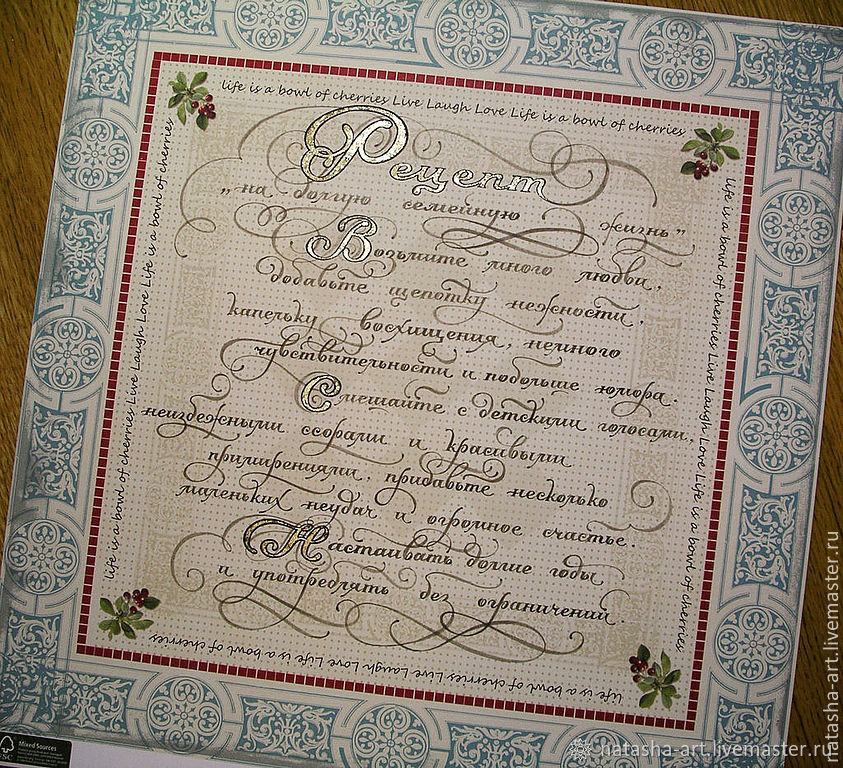 life is a bowl of cherries Live Laugh Love Life is a bowl of cherries
Рецепт
„на долгую семейную жизнь”
Возьмите много любви,
добавьте щепотку нежности,
капельку восхищения, немного
чувствительности и побольше юмора.
Смешайте с детскими голосами,
неизбежными ссорами и красивыми
примирениями, прибавьте несколько
маленьких неудач и огромное счастье.
Настаивать долгие годы
и употреблять без ограничений.
life is a bowl of cherries Live Laugh Love Life is a bowl of cherries
life is a bowl of cherries Live Laugh Love Life is a bowl of cherries
life is a bowl of cherries Live Laugh Love Life is a bowl of cherries
FSC
Mixed Sources
natasha-art.livemaster.ru
natasha-art.livemaster.ru